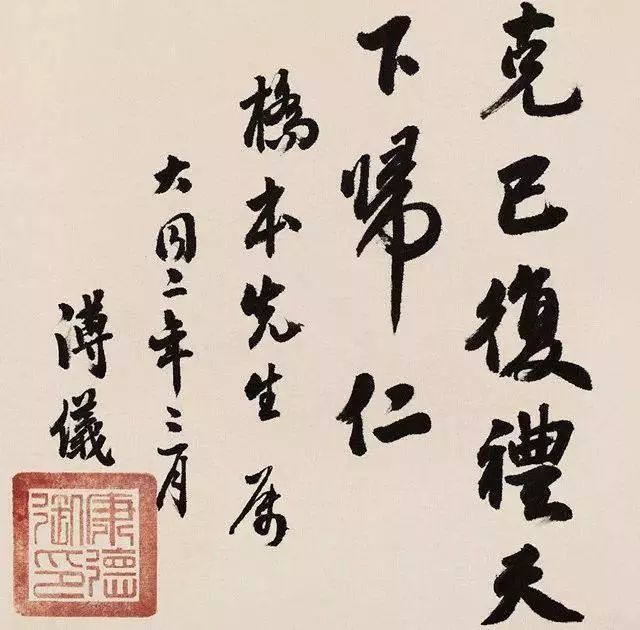 克己復禮天
下歸仁
橋本先生属
大同二年三月
溥儀
康德
御印